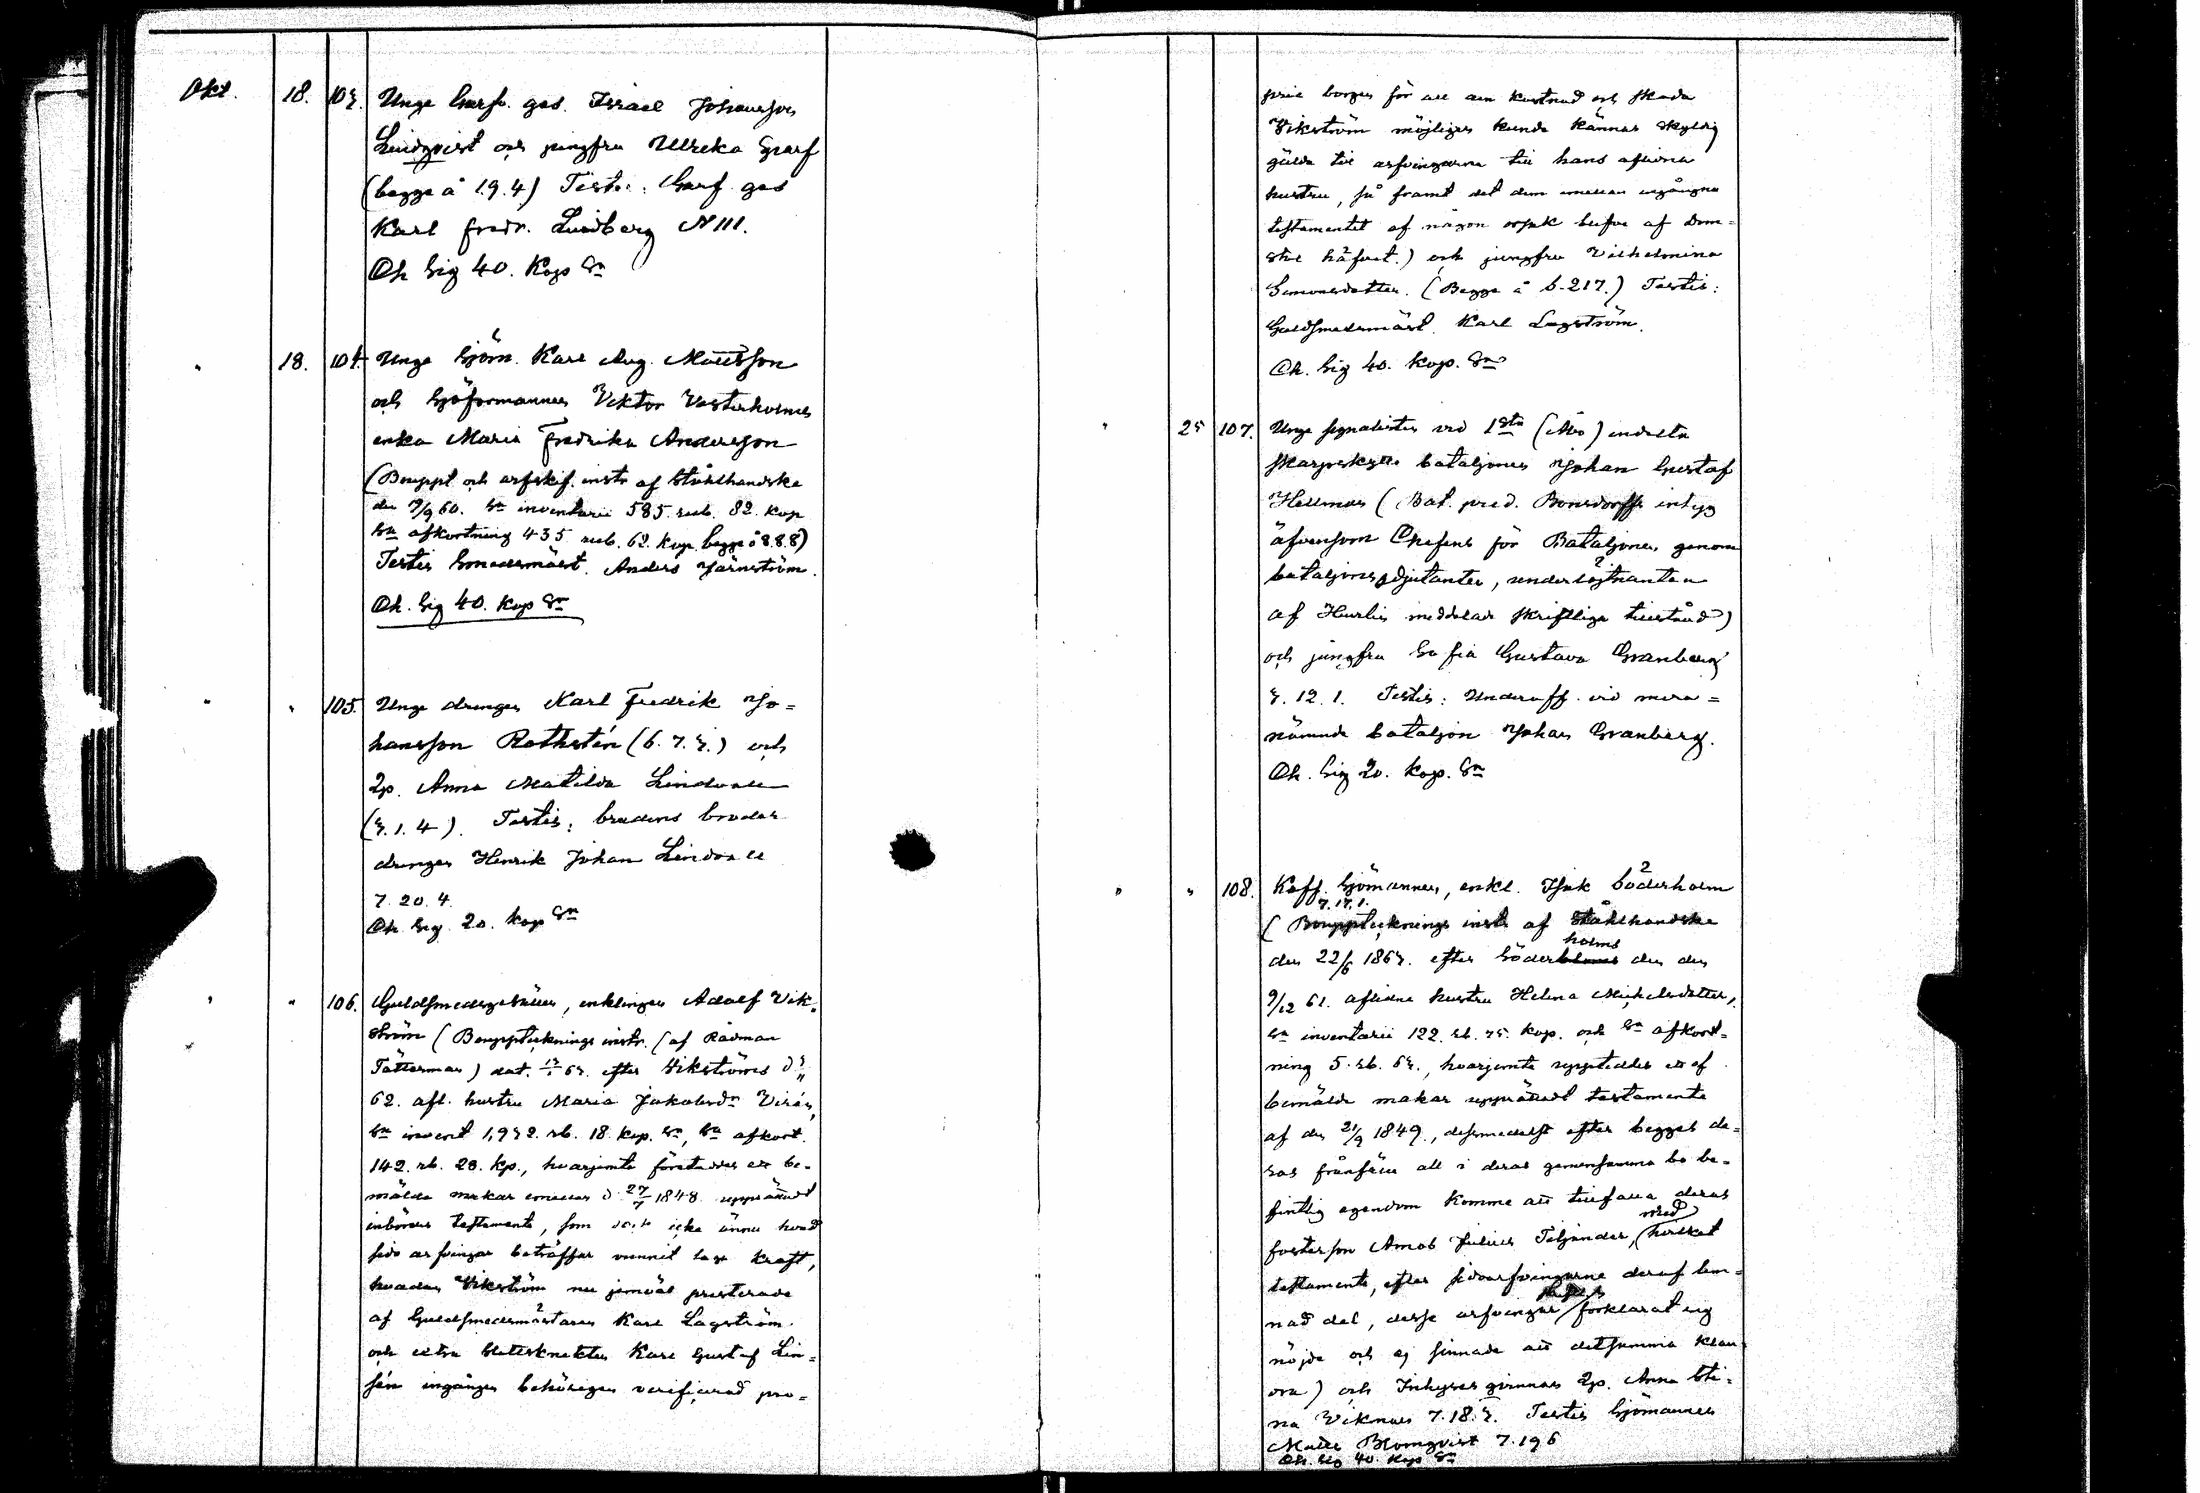 Okt. 18. 103. Unge Garfv. ges. Israel Johansson
Lindqvist och jungfru Ulreka Graf
(begge å 19.4) Testis: Garf. ges
Karl Fredr. Lindberg N 111.
Ok. Sig 40. Kop Sr
" 18. 104. Unge Sjöm. Karl Aug. Mattsson
och Sjöformannen Viktor Vesterholms
enka Maria Fredrika Andersson
(Bouppt och arfskif. instr af Stålhandske
den 9/9 60. Sa inventarii 585. rub. 82. kop
Sa afkortning 435 rub. 62. kop. begge å 8.8.8)
Testis Smedsmäst. Anders Järnström.
Ok. Sig 40. kop Sr
" " 105. Unge drengen Karl Fredrik Jo=
hansson Rothstén (6.7.3.) och
2p. Anna Matilda Lindvall
(3.1.4). Testis: brudens broder
drengen Henrik Johan Lindvall
7. 20. 4.
Ok. Sig. 20. kop Sr
" " 106. Guldsmedsgesällen, enklingen Adolf Vik=
ström (Boupptecknings instr. (af Rådman
Tätterman) dat. 63. efter Vikströms d
62. afl. hustru Maria Jakobsdr Virén,
Sa invent 1,932. rb. 18. kop. Sr, Sa afkort.
142. rb. 28. kp., hvarjemte företeddes ett be-
mälde makar emellan d. 27/7 1848 upprättadt
inbördes testamente, som dock icke ännu hvad
sido arfvingar beträffar vunnit laga kraft,
hvadan Vikström nu jemväl presterade
af Guldsmedsmästaren Karl Lagström
och extra Slottsknekten Karl Gustaf Lin=
sén ingången behörigen verificerad pro=
prie borgen för all den kostnad och skada
Vikström möjligen kunde kännas skyldig
gälda till arfvingarna till hans aflidna
hustru, så framt det dem emellan ingångna
testamentet af någon orsak blefve af Dom=
stol häfvet.) och jungfru Vilhelmina
Simonsdotter. (Begge å 6.217.) Testis:
Guldsmedsmäst. Karl Lagström.
Ok. Sig 40. kop. Sr
" 25 107. Unge signalisten vid 1sta (Åbo) indelta
skarpskytte bataljonen Johan Gustaf
Hellman (Bat. pred. Bonsdorffs intyg
äfvensom Chefens för Bataljonen genom
bataljons adjutanten, underlöjtnanten
af Heurlin meddelade skriftliga tillstånd)
och jungfru Sofia Gustava Granberg
3.12.1. Testis: Underoff. vid mera=
nämnde bataljon Johan Granberg.
Ok. Sig 20. kop. Sr
" " 108. Koff. Sjömannen, enkl. Isak Söderholm
7.17.1.
(Boupptecknings instr af Stålhandske
holms
den 22/6 1863. efter Söder den den
9/12 61. aflidna hustru Helena Michelsdotter,
Sa inventarii 122. rb. 75. kop. och Sa afkort=
ning 5. rb. 63., hvarjemte uppteddes ett af
bemälde makar upprättadt testamente
af den 21/9 1849., desmedelst efter begges de=
ras frånfälle all i deras gemensamma bo be=
fintlig egendom komme att tillfalla deras
med
fosterson Amos Julius Teljander, (hvilket
testamente, efter sidoarfvingarne deraf lem=
nad del, desse arfvingar förklarat sig
nöjde och ej sinnade att detsamma klan=
dra) och Inhyses qvinnan 2p. Anna Sti=
na Vikman 7.18.3. Testis Sjömannen
Matts Blomqvist 7.196
Ok. Sig 40. kop Sr